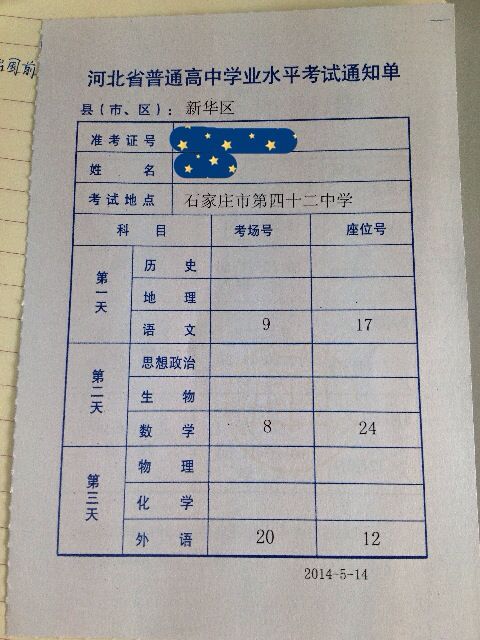 出国前
河北省普通高中学业水平考试通知单
县(市、区): 新华区
准考证号
姓 名
考试地点 石家庄市第四十二中学
科 目 考场号 座位号
第一天
历 史
地 理
语 文 9 17
第二天
思想政治
生 物
数 学 8 24
第三天
物 理
化 学
外 语 20 12
2014-5-14